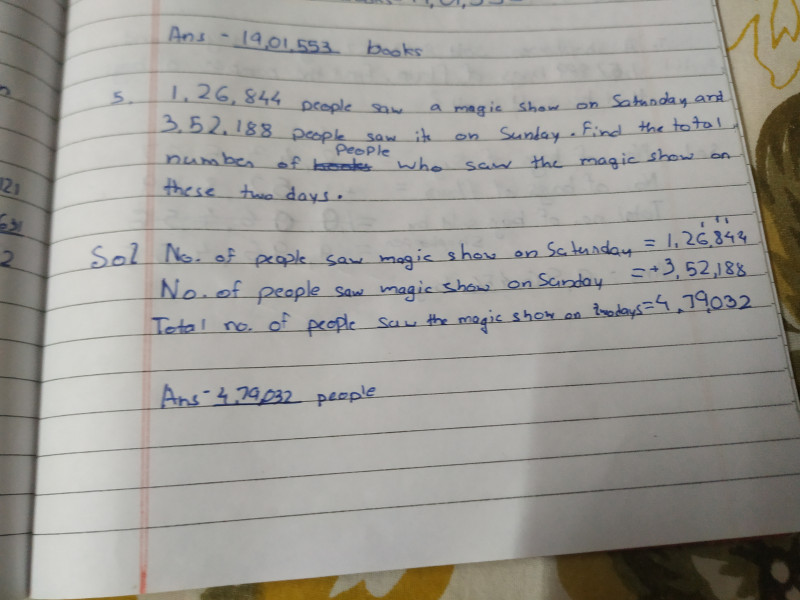 Ans - 19,01,553 books
5. 1,26,844 people saw a magic show on Saturday and
3,52,188 people saw it on Sunday. Find the total
People
number of books who saw the magic show on
these two days.
Sol No. of people saw magic show on Saturday = 1,26,844
No. of people saw magic show on Sunday = +3,52,188
Total no. of people saw the magic show on two days = 4,79,032
Ans - 4,79,032 people